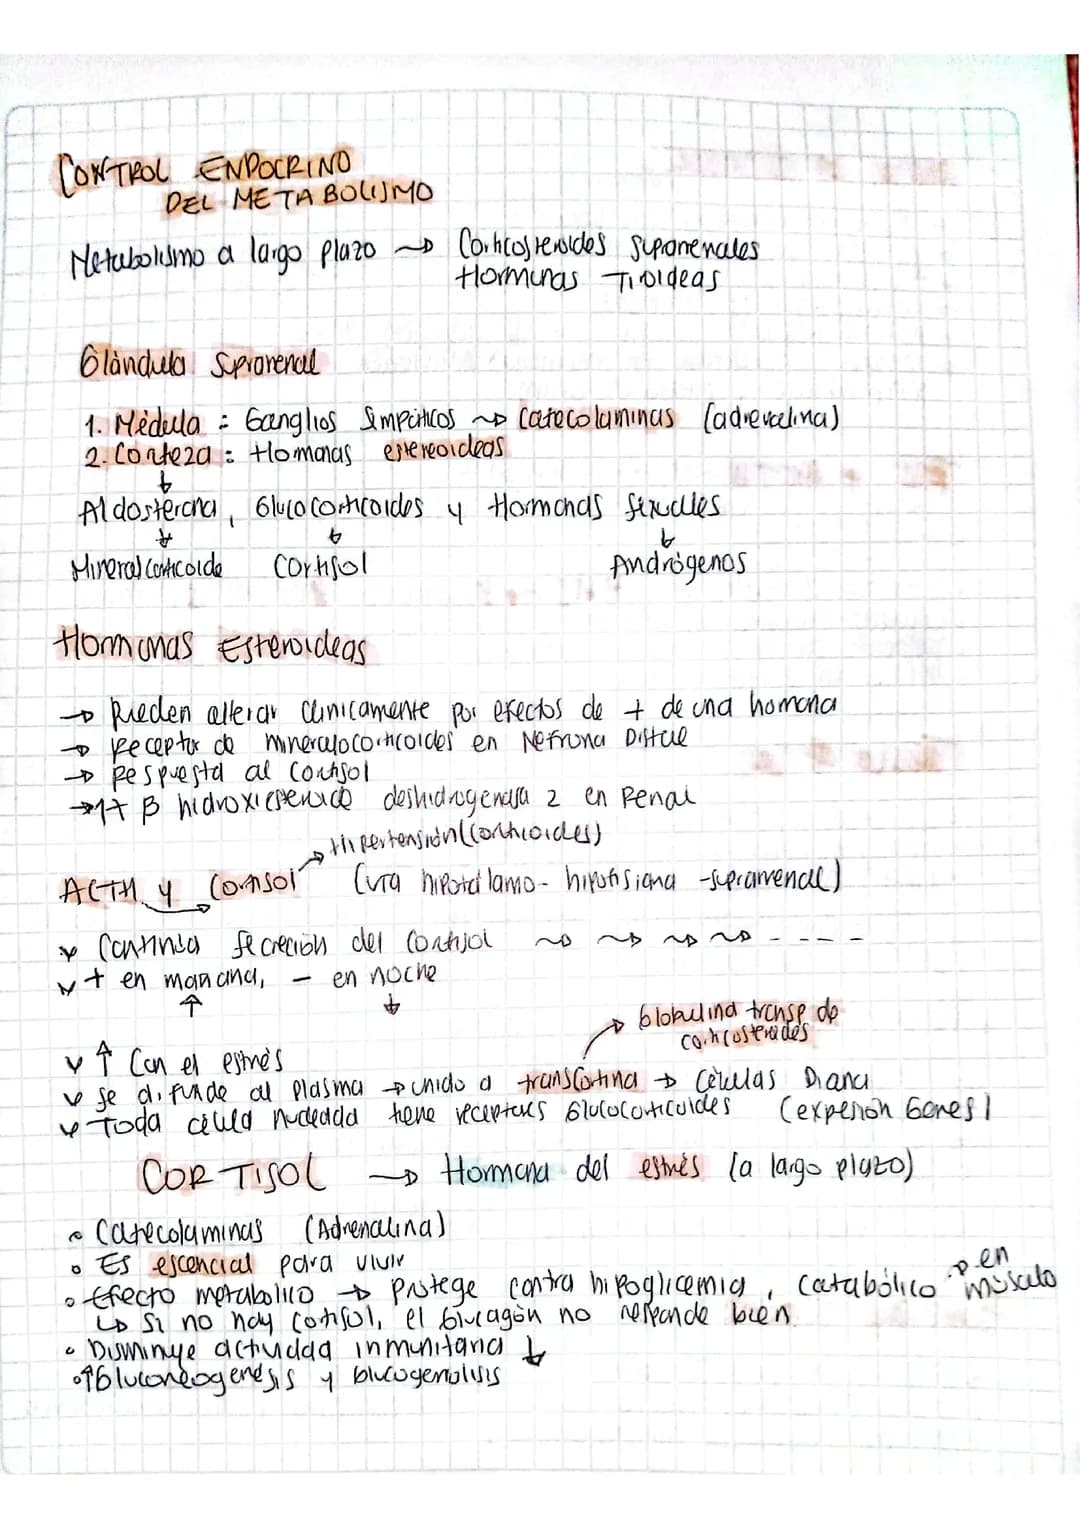 CONTROL ENDOCRINO
DEL METABOLISMO
Metabolismo a largo plazo → Corticosteroides suparrenales
Hormonas Tiroideas
Glàndula Suprarrenal
1. Mèdula : Ganglios Simpáticos → Catecolaminas (adrenalina)
2. Corteza : Hormonas estereoideas
↓
Aldosterona, Glucocorticoides y Hormonas sexuales
↓ ↓ ↓
Mineralcorticoide Cortisol Andrògenos
Hormonas Esteroideas
→ Pueden alterar clinicamente por efectos de + de una hormona
→ Receptor de mineralocorticoides en Nefrona Distal
→ Respuesta al Cortisol
→ β deshidrogenasa 2 en Renal
Hipertensión (Corticoides)
ACTH y Cortisol (Vía hipotálamo - hipofisiana - suprarrenal)
Continùa secreciòn del Cortisol → → → → - - - -
+ en mañana, - en noche
↑ ↓
Globulina transp de
corticosteroides
↑ Con el estrès
Se difunde al plasma → unido a transcortina → Cèlulas Diana
Toda cèlula nucleada tiene receptores Glucocorticoides (expresiòn Genes)
CORTISOL → Hormona del estrès (a largo plazo)
• Catecolaminas (Adrenalina)
• Es escencial para vivir
→ en
• Efecto metabolico → Protege contra hipoglicemia, Catabòlico músculo
↳ Si no hay cortisol, el Glucagòn no responde bien
• Disminuye actividad inmunitaria ↓
• ↑Gluconeogenesis y Glucogenolisis